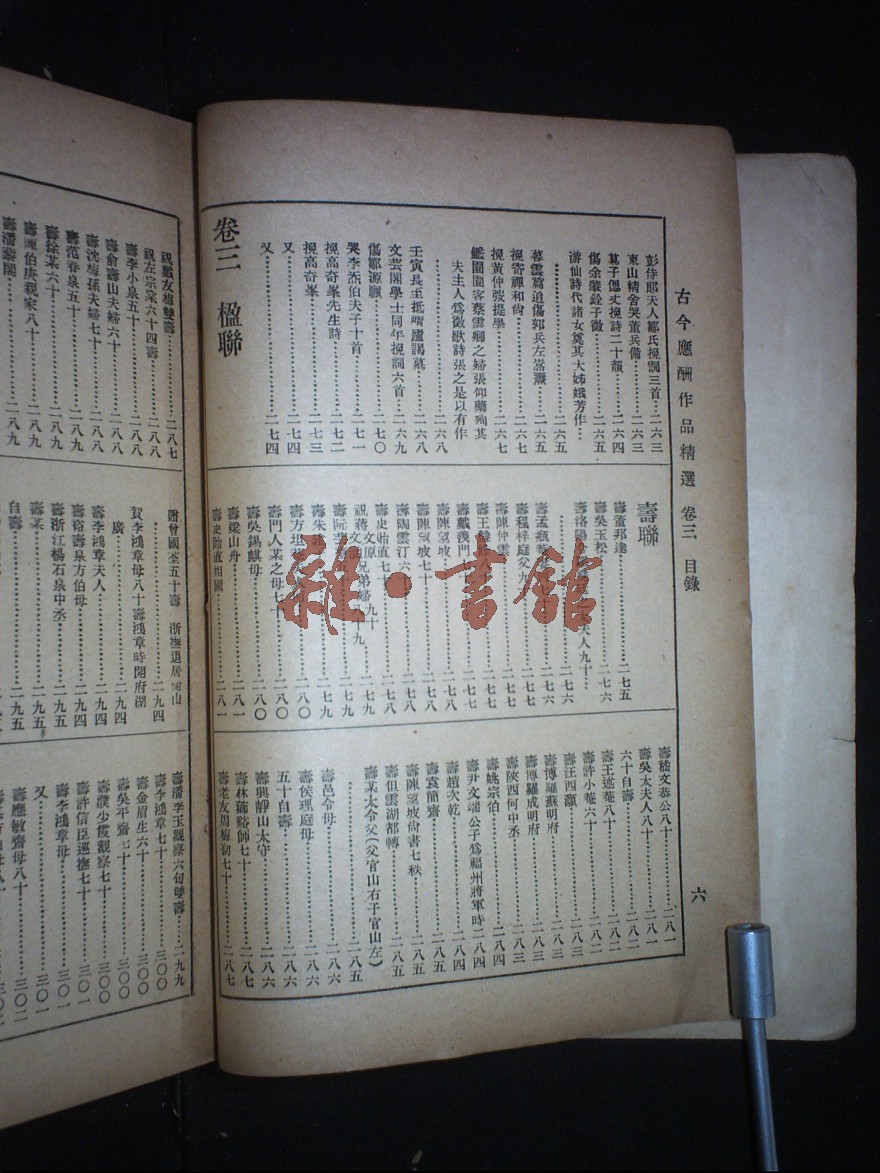 古今應酬作品精選 卷三 目錄
六
彭侍郎夫人鄒氏挽詞三首……二六三
東山精舍哭董兵備……二六三
葛子偲丈挽詩二十韻……二六四
傷余肇銓子徵……二六五
游仙時代諸女奠其大姊娥芳作…
……二六五
暮雲篇追傷郭兵左嵩燾……二六五
挽寄禪和尚……二六七
挽黃仲弢提學……二六七
夫主人爲徵歌詩張之是以有作
……二六八
文芸閣學士同年挽詞六首……二六九
傷鄒源颿……二七〇
哭李炁伯夫子十首……二七一
挽高奇峯先生詩……二七二
挽高奇峯……二七三
又……二七四
又……二七四
卷三 楹聯
壽聯
壽董邦達……二七五
壽吳玉松……二七六
……二七六
壽程梓庭父九……二七七
壽陳仲雲……二七七
壽戴羨門……二七七
壽陳望坡七十……二七八
壽陶雲汀六十……二七八
壽史貽直七十……二七九
壽門人某之母七十……二八〇
壽吳錫麒母……二八〇
壽梁山舟……二八一
壽史貽直相國……二八一
壽嵇文恭公八十……二八一
壽吳太夫人八十……二八一
六十自壽……二八二
壽王述菴八十……二八二
壽許小菴六十……二八二
壽汪西灝……二八三
壽博羅蘇明府……二八三
壽博羅成明府……二八三
壽陝西何中丞……二八三
壽姚宗伯……二八四
壽尹文端公子爲福州將軍時二八四
壽趙次乾……二八四
壽袁簡齋……二八五
壽陳望坡尙書七秩……二八五
壽但雲湖都轉……二八五
壽某大令父(父官山右子官山左)
……二八五
壽邑令母……二八六
壽侯理庭母……二八六
五十自壽……二八六
壽興靜山太守……二八六
壽林蘅谿師七十……二八七
壽老友周梅初七十……二八七
祝戴友梅雙壽……二八七
祝左宗棠六十四壽……二八八
壽李小泉五十……二八八
壽俞壽山夫婦六十……二八八
壽沈梅孫夫婦七十……二八八
壽范春泉五十……二八九
壽徐某六十……二八九
壽陳伯庚親家八十……二八九
壽潘黎閣……二八九
贈曾國荃五十壽 浙撫退居衡山
……二九四
賀李鴻章母八十壽鴻章時開府湖
廣……二九四
壽李鴻章夫人……二九四
壽裕壽泉方伯母……二九五
壽浙江楊石泉中丞……二九五
壽某……二九五
自壽
壽潘季玉觀察六旬雙壽……二九九
壽李鴻章七十……三〇〇
壽金眉生六十……三〇〇
壽吳平齋七十……三〇〇
壽濮少霞觀察七十……三〇〇
壽許信臣巡撫七十……三〇一
壽李鴻章母……三〇一
又……三〇一
壽應敏齋母八十……三〇二
雜·書館